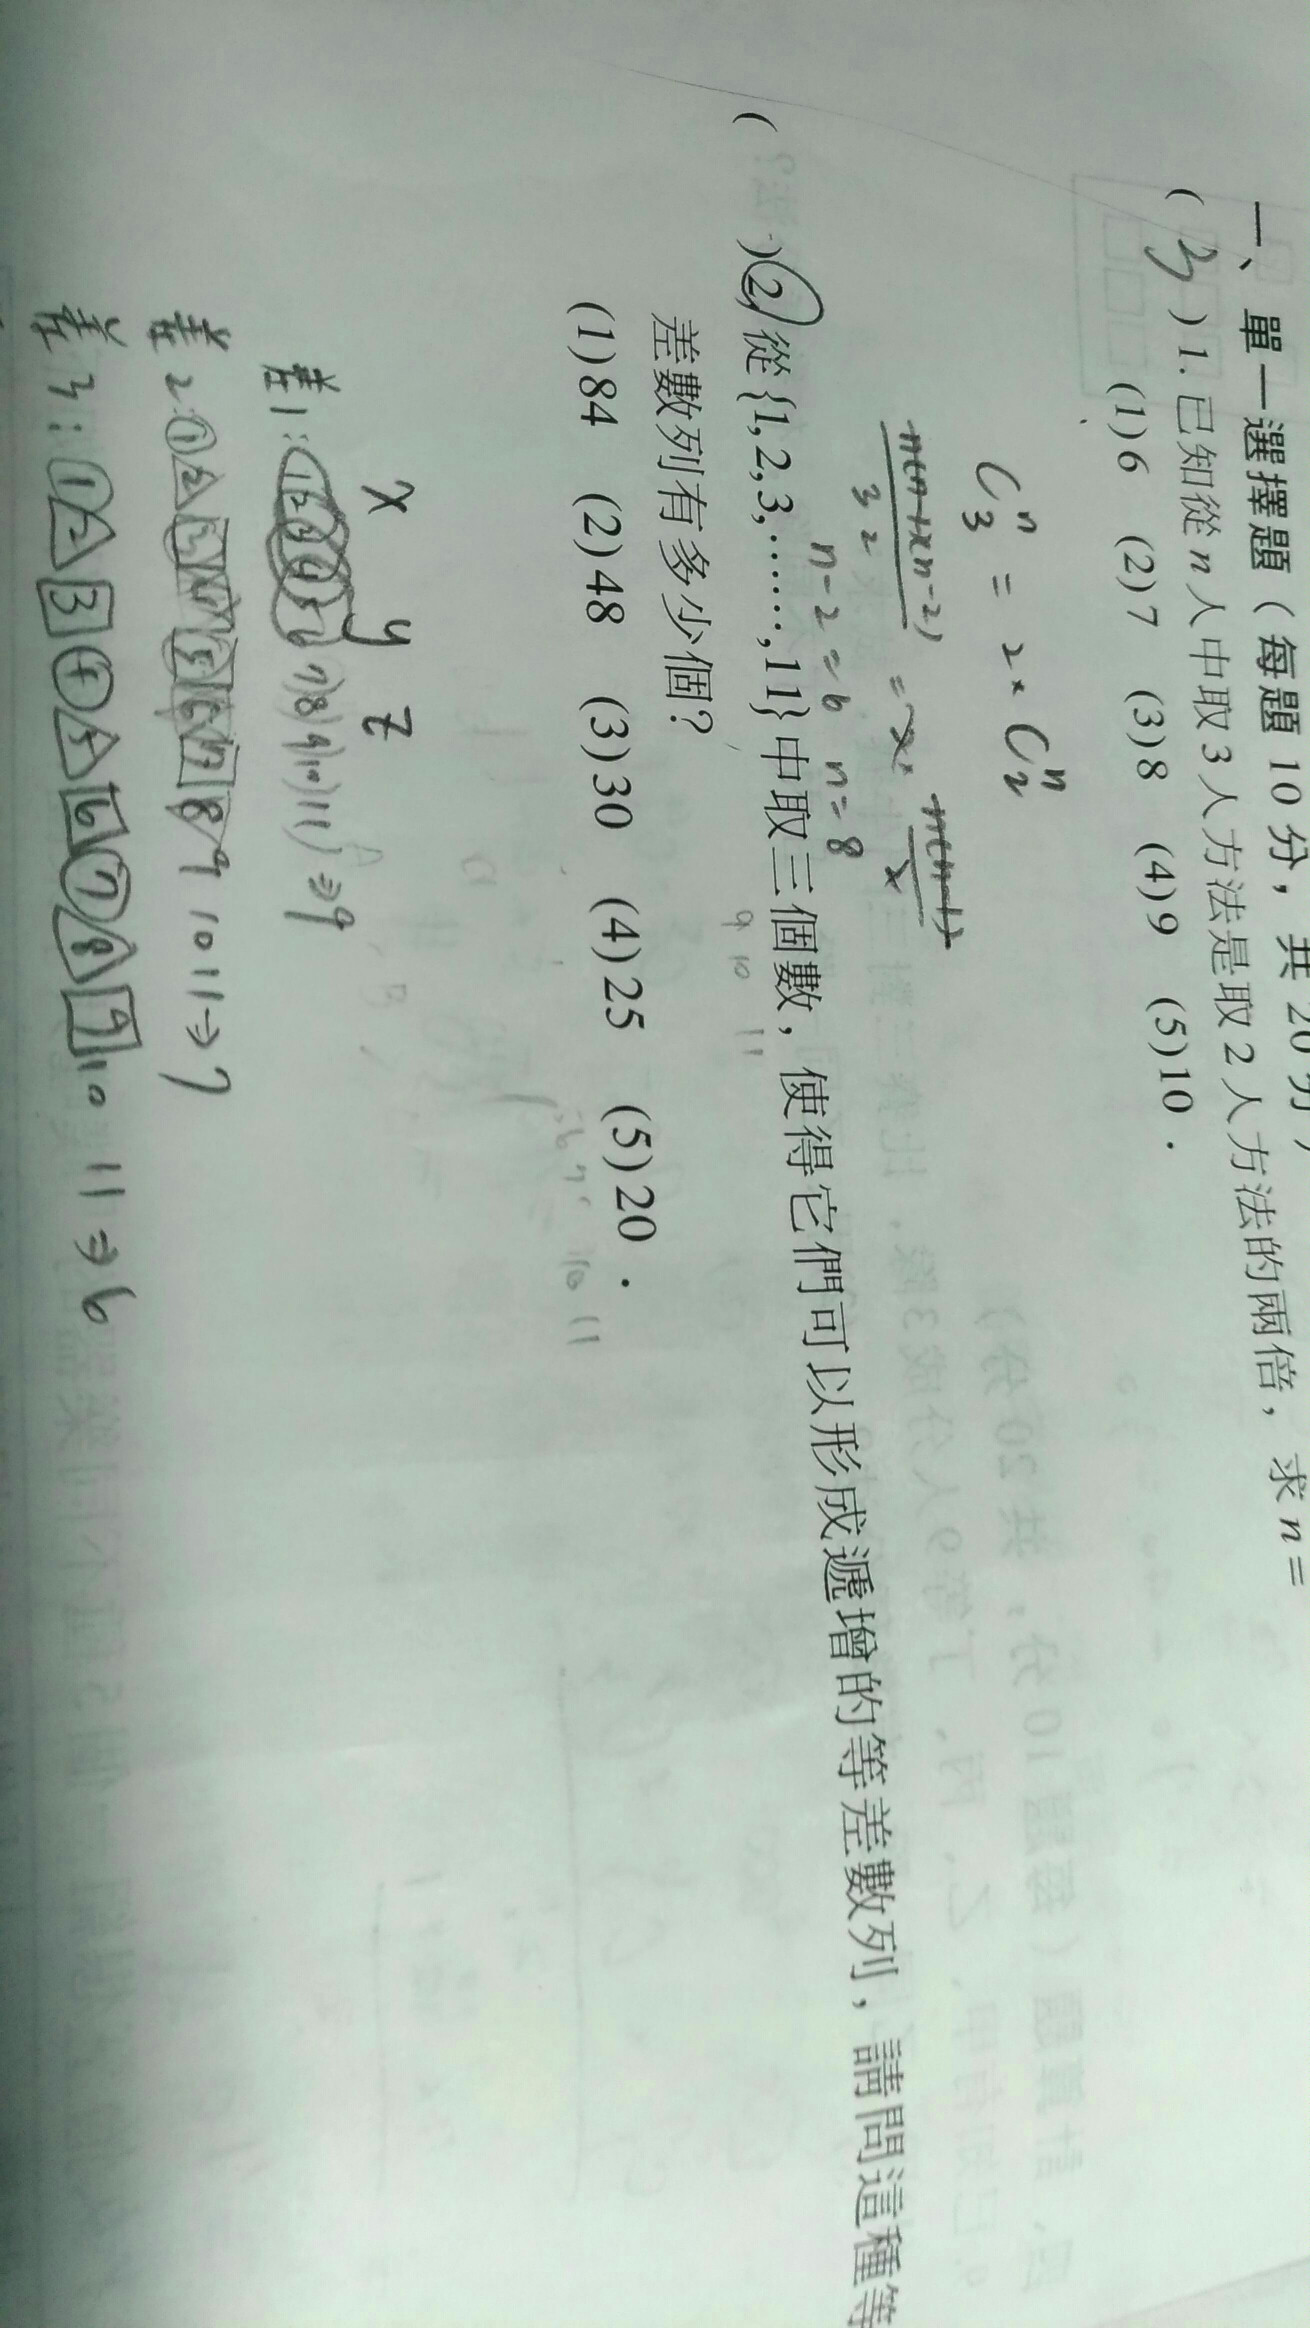 一、單一選擇題（每題10分，共20分）
( 3 ) 1. 已知從n人中取3人方法是取2人方法的兩倍，求n=
(1)6 (2)7 (3)8 (4)9 (5)10．
C^n_3 = 2×C^n_2
n-2=6 n=8
( ) 2. 從{1,2,3,……,11}中取三個數，使得它們可以形成遞增的等差數列，請問這種等
差數列有多少個？
(1)84 (2)48 (3)30 (4)25 (5)20．
x y z
差1: 1 2 3 4 5 6 7 8 9 10 11 ⇒9
差2: 1 2 3 4 5 6 7 8 9 10 11 ⇒7
差3: 1 2 3 4 5 6 7 8 9 10 11 ⇒6